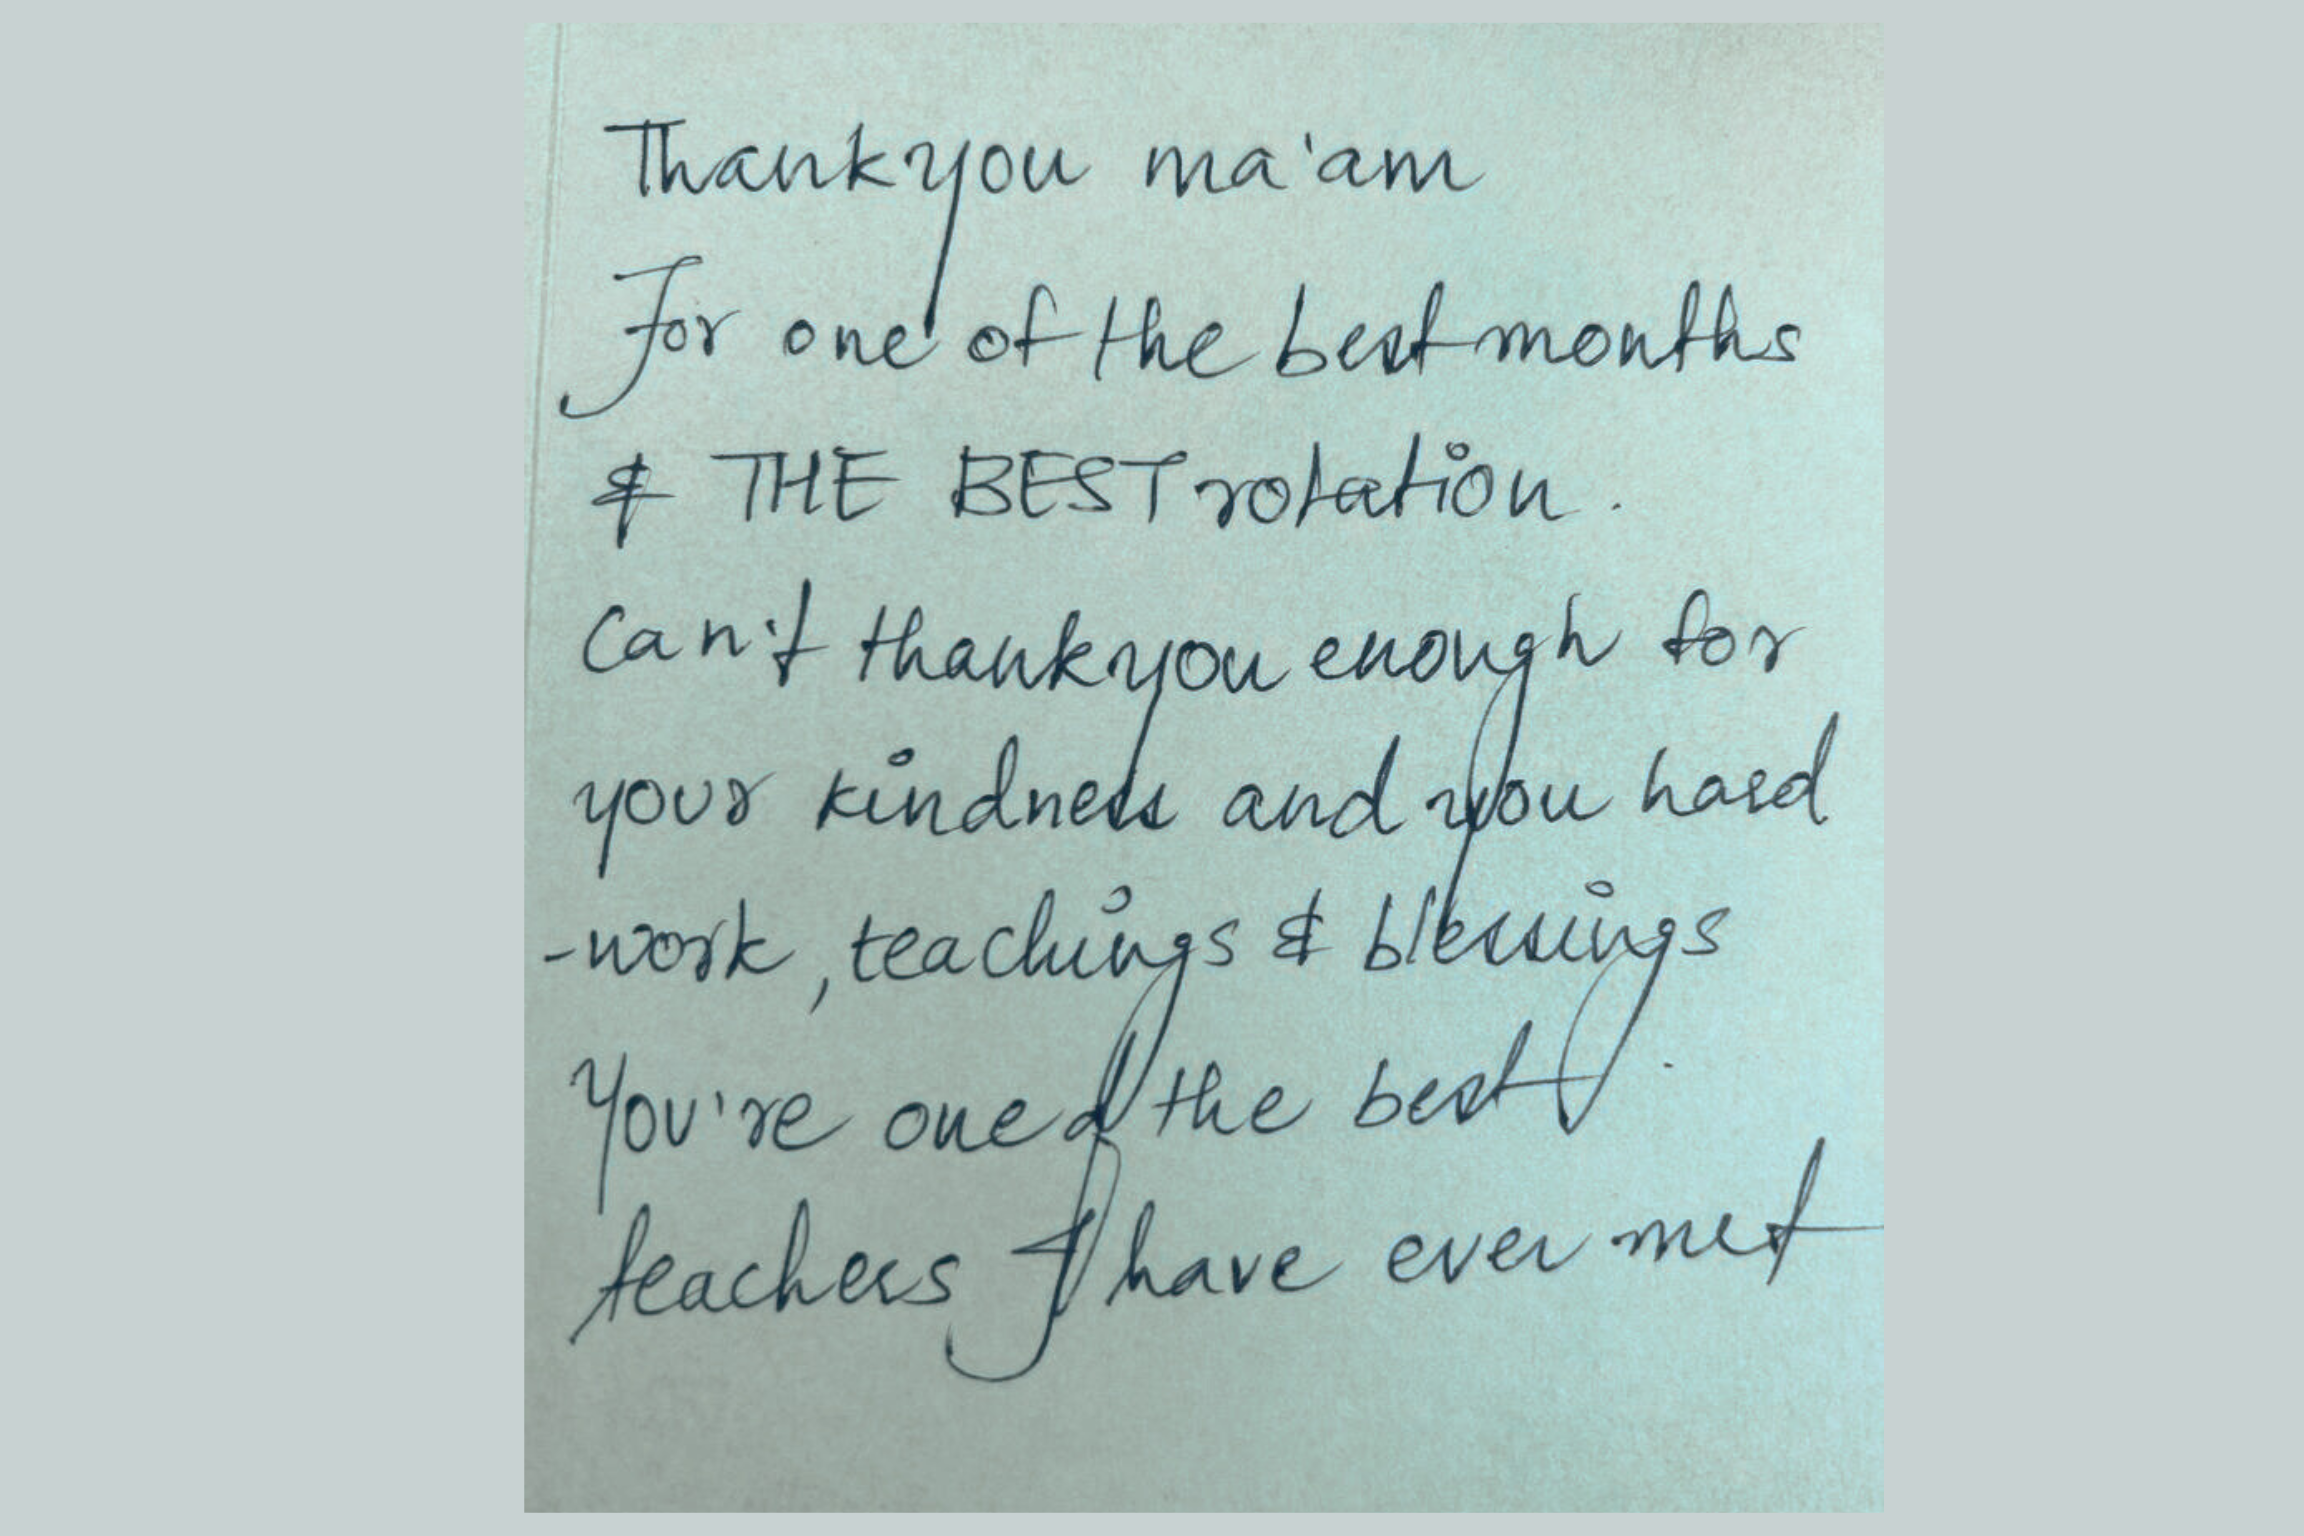 Thankyou ma'am
For one of the best months
& THE BEST rotation.
Can't thankyou enough for
your kindness and you hard
-work, teachings & blessings.
You're one of the best
teachers I have ever met